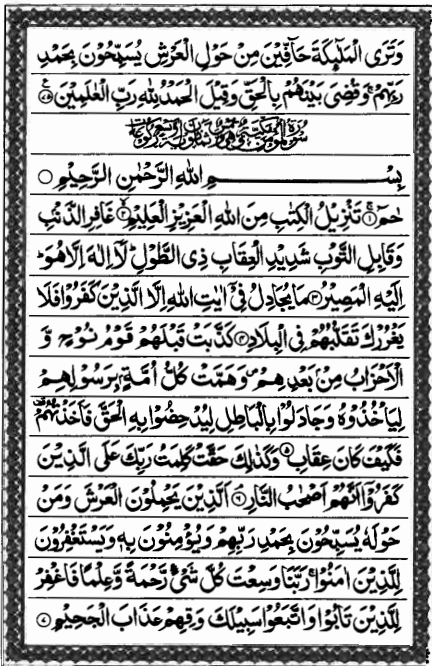 وَتَرَى الْمَلٰٓئِكَةَ حَآفِّيْنَ مِنْ حَوْلِ الْعَرْشِ يُسَبِّحُوْنَ بِحَمْدِ
رَبِّهِمْ ۚ وَقُضِيَ بَيْنَهُمْ بِالْحَقِّ وَقِيْلَ الْحَمْدُ لِلّٰهِ رَبِّ الْعٰلَمِيْنَ ۝۷۵
بِسْمِ اللّٰهِ الرَّحْمٰنِ الرَّحِيْمِ ۝
حٰمٓ ۝۱ تَنْزِيْلُ الْكِتٰبِ مِنَ اللّٰهِ الْعَزِيْزِ الْعَلِيْمِ ۝۲ غَافِرِ الذَّنْۢبِ
وَقَابِلِ التَّوْبِ شَدِيْدِ الْعِقَابِ ذِي الطَّوْلِ ؕ لَاۤ اِلٰهَ اِلَّا هُوَ ؕ
اِلَيْهِ الْمَصِيْرُ ۝۳ مَا يُجَادِلُ فِيْۤ اٰيٰتِ اللّٰهِ اِلَّا الَّذِيْنَ كَفَرُوْا فَلَا
يَغْرُرْكَ تَقَلُّبُهُمْ فِي الْبِلَادِ ۝۴ كَذَّبَتْ قَبْلَهُمْ قَوْمُ نُوْحٍ وَّ
الْاَحْزَابُ مِنْۢ بَعْدِهِمْ ۪ وَهَمَّتْ كُلُّ اُمَّةٍۭ بِرَسُوْلِهِمْ
لِيَاْخُذُوْهُ وَجَادَلُوْا بِالْبَاطِلِ لِيُدْحِضُوْا بِهِ الْحَقَّ فَاَخَذْتُهُمْ
فَكَيْفَ كَانَ عِقَابِ ۝۵ وَكَذٰلِكَ حَقَّتْ كَلِمَتُ رَبِّكَ عَلَى الَّذِيْنَ
كَفَرُوْۤا اَنَّهُمْ اَصْحٰبُ النَّارِ ۝۶ اَلَّذِيْنَ يَحْمِلُوْنَ الْعَرْشَ وَمَنْ
حَوْلَهٗ يُسَبِّحُوْنَ بِحَمْدِ رَبِّهِمْ وَيُؤْمِنُوْنَ بِهٖ وَيَسْتَغْفِرُوْنَ
لِلَّذِيْنَ اٰمَنُوْا ۚ رَبَّنَا وَسِعْتَ كُلَّ شَيْءٍ رَّحْمَةً وَّعِلْمًا فَاغْفِرْ
لِلَّذِيْنَ تَابُوْا وَاتَّبَعُوْا سَبِيْلَكَ وَقِهِمْ عَذَابَ الْجَحِيْمِ ۝۷